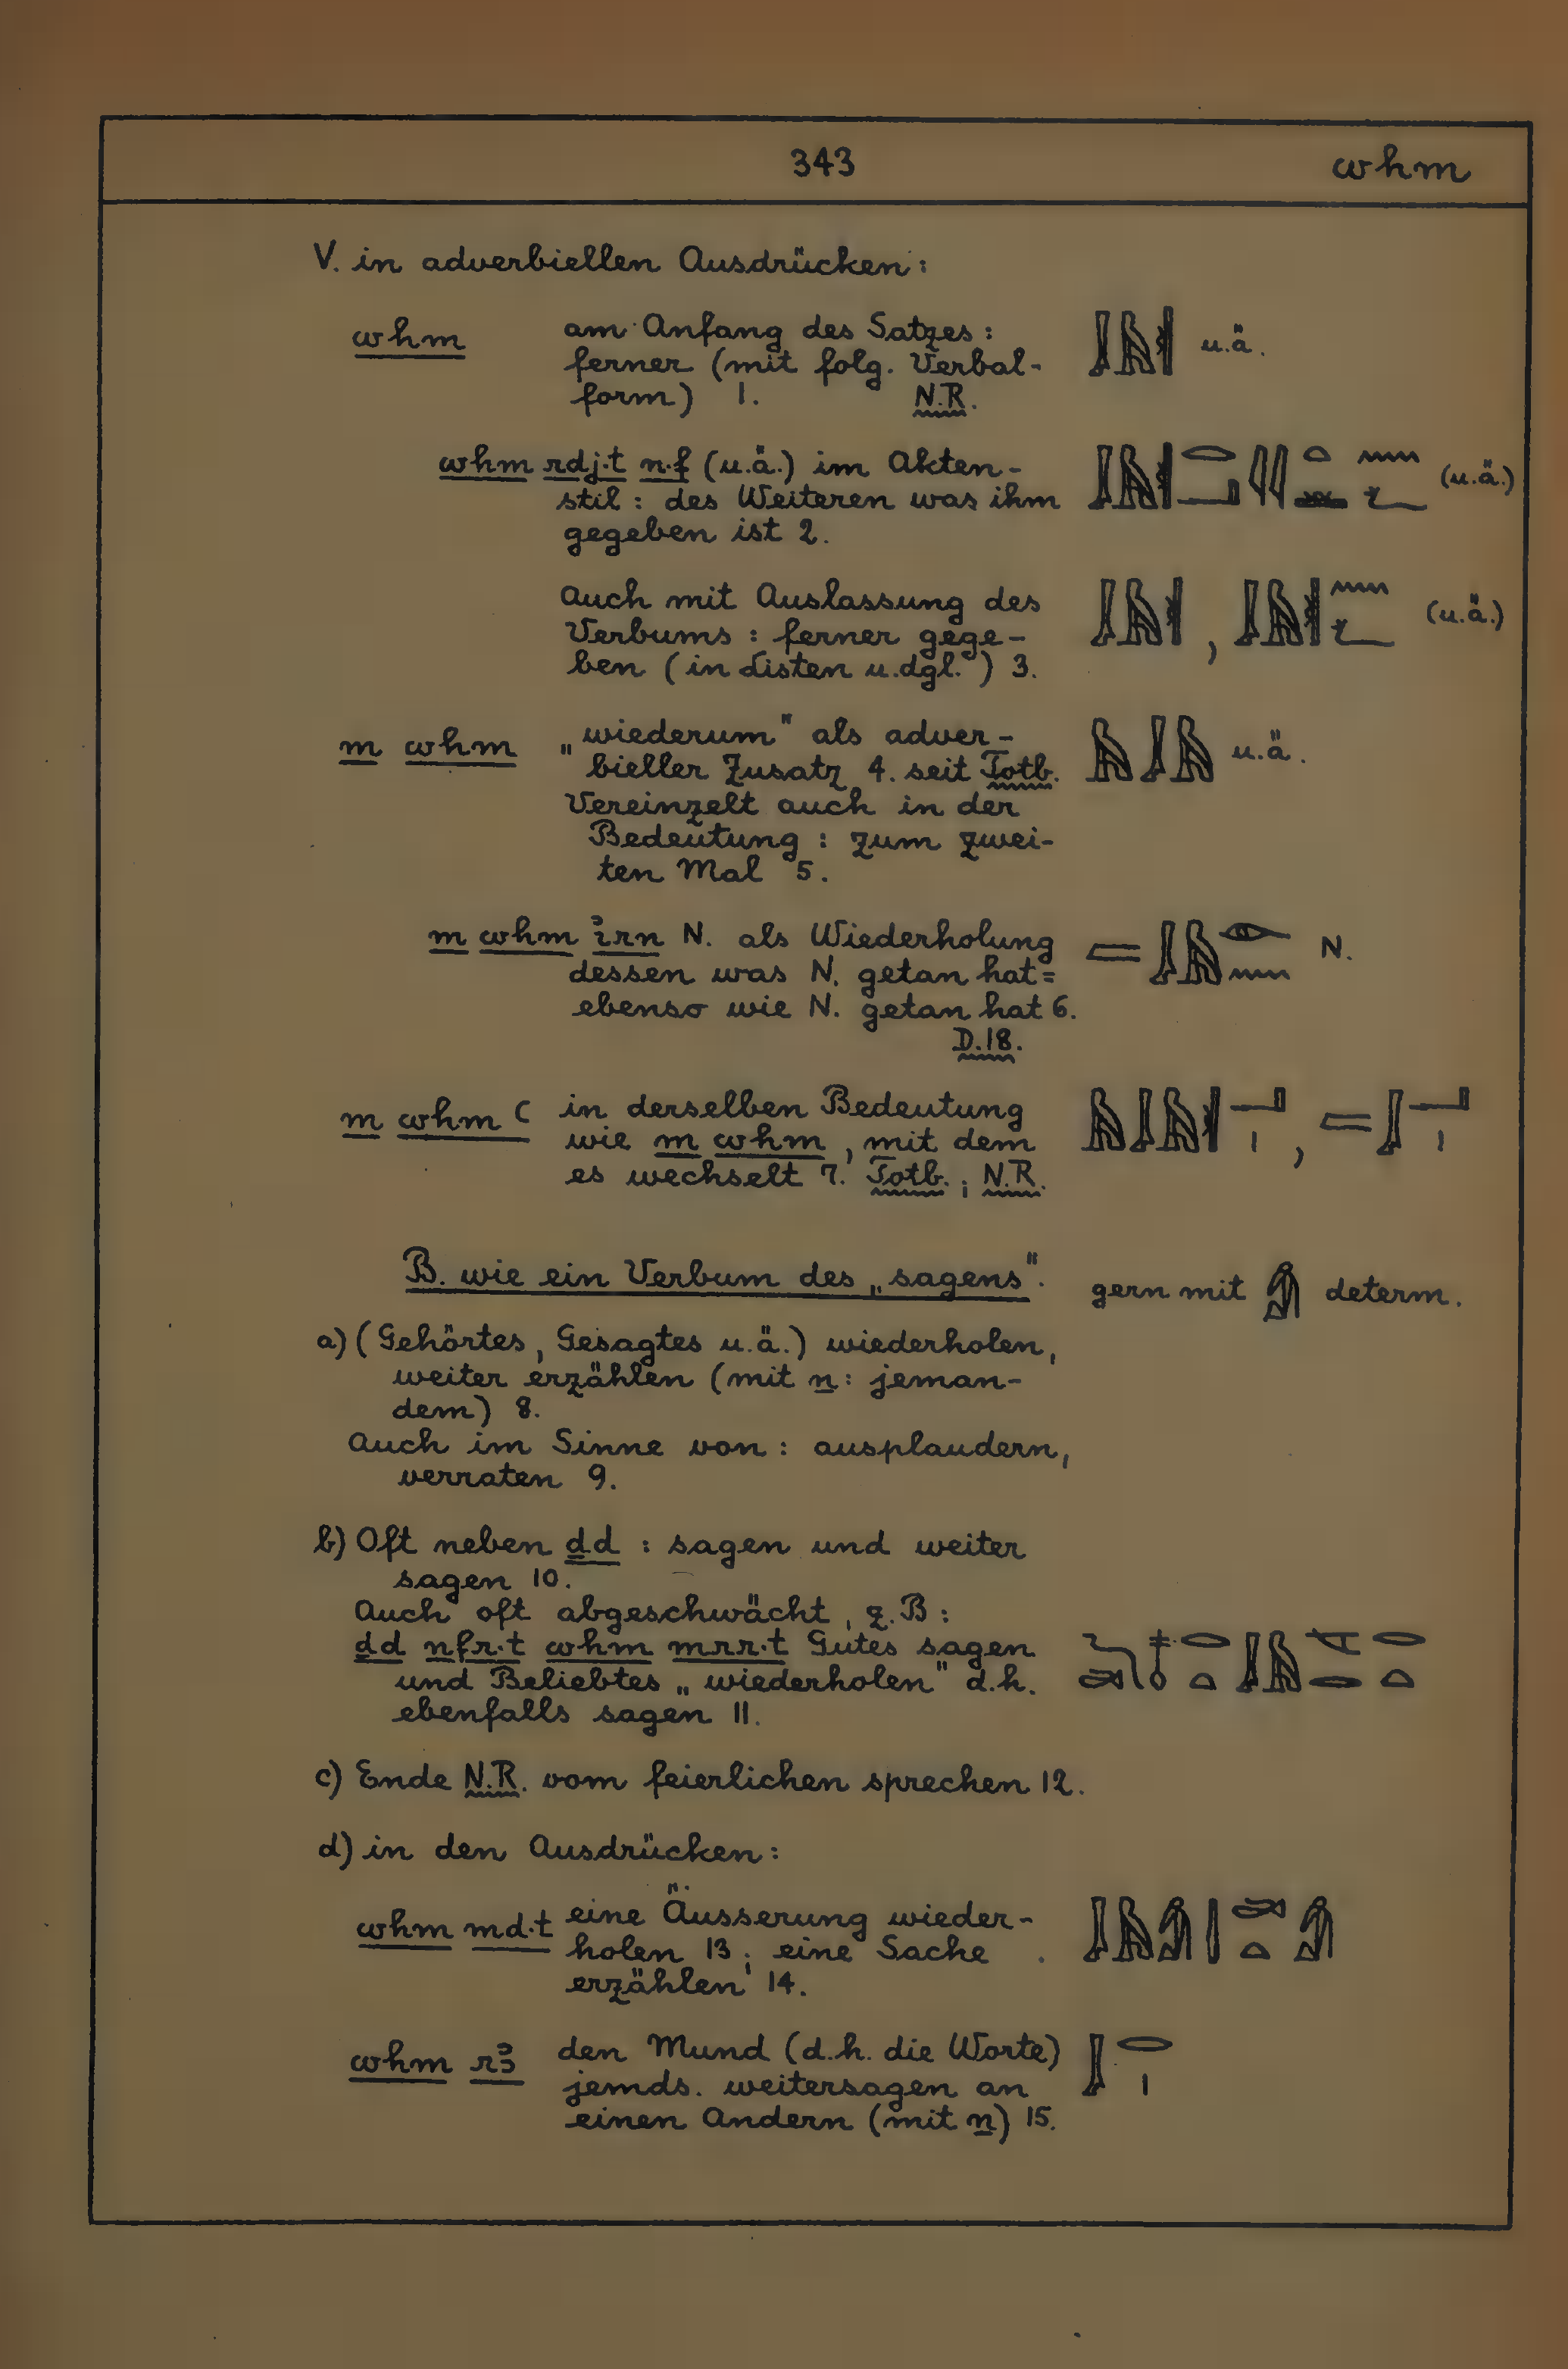 343 whm
V. in adverbiellen Ausdrücken:
whm am Anfang des Satzes: u.ä.
ferner (mit folg. Verbal-
form) 1. N.R.
whm rdj.t n.f (u.ä.) im Akten- (u.ä.)
stil: des Weiteren was ihm
gegeben ist 2.
Auch mit Auslassung des
Verbums: ferner gege- , (u.ä.)
ben (in Listen u.dgl.) 3.
m whm „wiederum" als adver- u.ä.
bieller Zusatz 4. seit Totb.
Vereinzelt auch in der
Bedeutung: zum zwei-
ten Mal 5.
m whm ı͗rn N. als Wiederholung N.
dessen was N. getan hat =
ebenso wie N. getan hat 6.
D.18.
m whm ꜥ in derselben Bedeutung
wie m whm, mit dem ,
es wechselt 7. Totb.; N.R.
B. wie ein Verbum des „sagens". gern mit determ.
a) (Gehörtes, Gesagtes u.ä.) wiederholen,
weiter erzählen (mit n: jeman-
dem) 8.
Auch im Sinne von: ausplaudern,
verraten 9.
b) Oft neben ḏd: sagen und weiter
sagen 10.
Auch oft abgeschwächt, z.B:
ḏd nfr.t whm mrr.t Gutes sagen
und Beliebtes „wiederholen" d.h.
ebenfalls sagen 11.
c) Ende N.R. vom feierlichen sprechen 12.
d) in den Ausdrücken:
whm md.t eine Äusserung wieder-
holen 13; eine Sache
erzählen 14.
whm rꜣ den Mund (d.h. die Worte)
jemds. weitersagen an
einen Andern (mit n) 15.